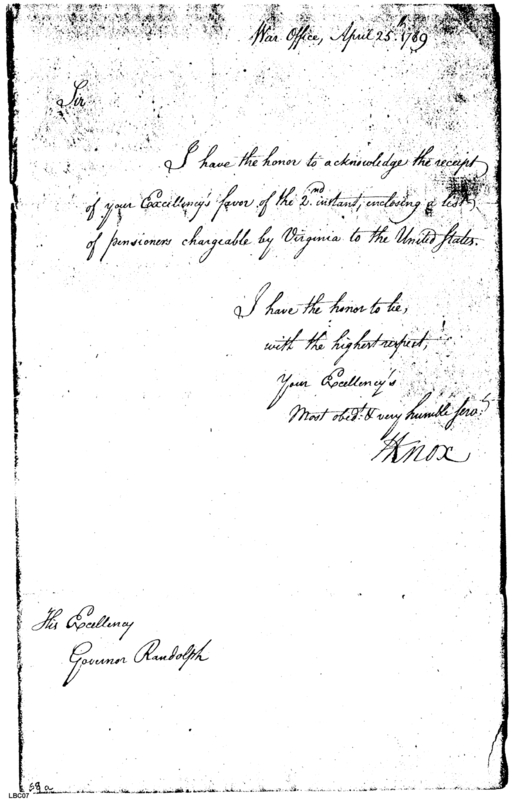 War Office, April 25th. 1789
Sir
I have the honor to acknowledge the receipt
of your Excellency's favor of the 2nd. instant, enclosing a list
of pensioners chargeable by Virginia to the United States.
I have the honor to be,
with the highest respect,
Your Excellency's
Most obedt. & very humble servt.
HKnox
His Excellency
Governor Randolph
58 a
LBC07